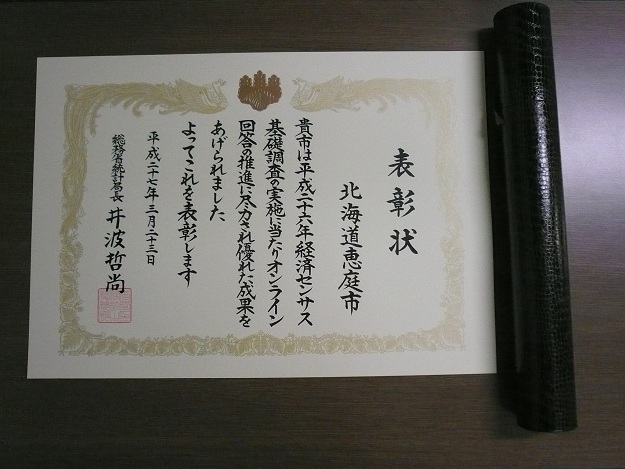 表彰状
北海道恵庭市
貴市は平成二十六年経済センサス
基礎調査の実施に当たりオンライン
回答の推進に尽力され優れた成果を
あげられました
よってこれを表彰します
平成二十七年三月二十三日
総務省統計局長 井波哲尚